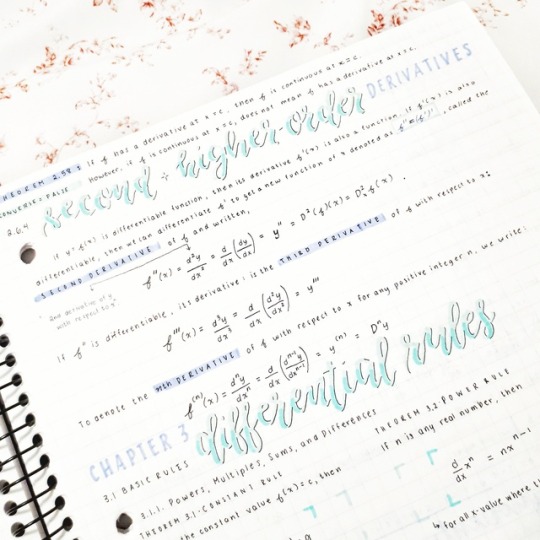 THEOREM 2.5R: If f has a derivative at x=c, then f is continuous at x=c.
CONVERSE: FALSE However, if f is continuous at x=c, does not mean f has a derivative at x=c.
2.6.4 second + higher order DERIVATIVES
If y=f(x) is differentiable function, then its derivative f'(x) is also a function. If f'(x) is also
differentiable, then we can differentiate f' to get a new function of x denoted as f"(x), called the
SECOND DERIVATIVE of f and written,
f"(x) = d²y/dx² = d/dx (dy/dx) = y" = D²(f)(x) = D²ₓ f(x).
2nd derivative of y
with respect to x
If f" is differentiable, its derivative is the THIRD DERIVATIVE of f with respect to x:
f'''(x) = d³y/dx³ = d/dx (d²y/dx²) = y'''
To denote the nth DERIVATIVE of f with respect to x for any positive integer n, we write:
f⁽ⁿ⁾(x) = dⁿy/dxⁿ = d/dx (dⁿ⁻¹y/dxⁿ⁻¹) = y⁽ⁿ⁾ = Dⁿy
CHAPTER 3 differential rules
3.1 BASIC RULES
3.1.1. Powers, Multiples, Sums, and Differences
THEOREM 3.1-CONSTANT RULE
the constant value f(x)=c, then
THEOREM 3.2-POWER RULE
if n is any real number, then
d/dx xⁿ = nxⁿ⁻¹
for all x-value where th